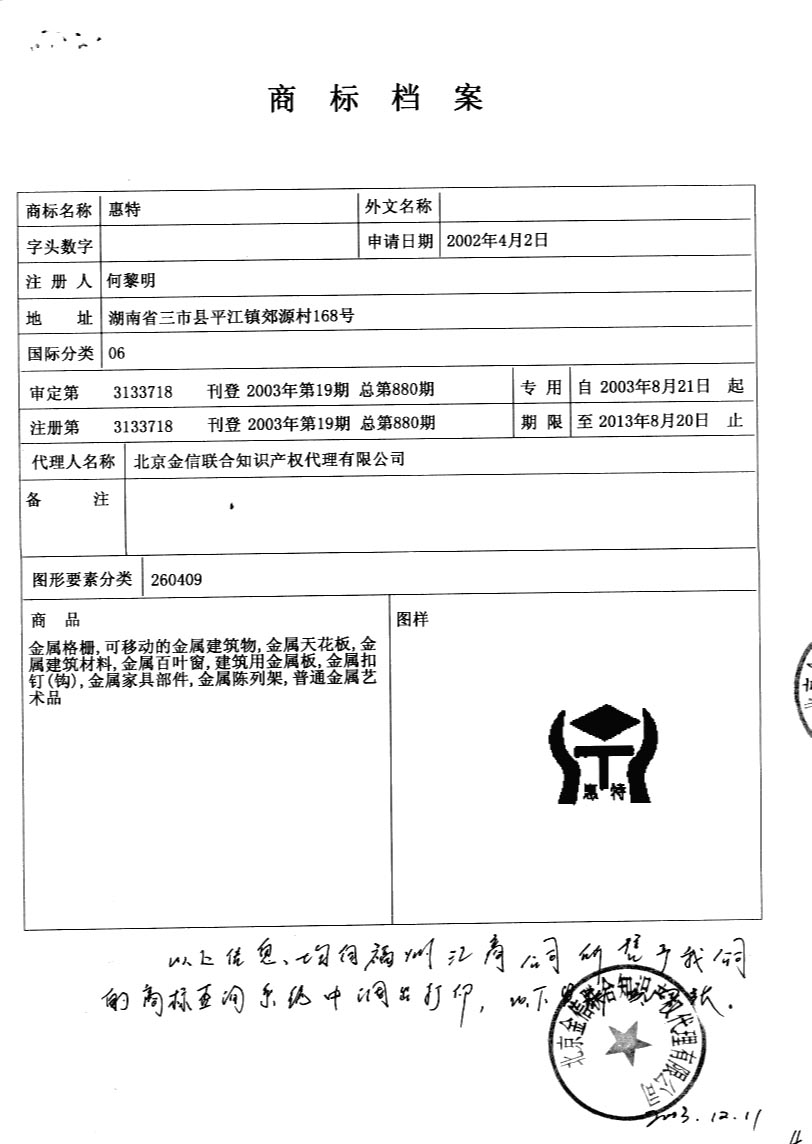 商标档案
商标名称 惠特 外文名称
字头数字 申请日期 2002年4月2日
注册人 何黎明
地址 湖南省三市县平江镇郊源村168号
国际分类 06
审定第 3133718 刊登 2003年第19期 总第880期 专用 自 2003年8月21日 起
注册第 3133718 刊登 2003年第19期 总第880期 期限 至 2013年8月20日 止
代理人名称 北京金信联合知识产权代理有限公司
备注
图形要素分类 260409
商品 图样
金属格栅,可移动的金属建筑物,金属天花板,金
属建筑材料,金属百叶窗,建筑用金属板,金属扣
钉(钩),金属家具部件,金属陈列架,普通金属艺
术品
惠特
以上信息、均何福州汇商公司所提予我公司
的商标查询系统中调出打印，以下
北京金信联合知识产权代理有限公司
2003.12.11